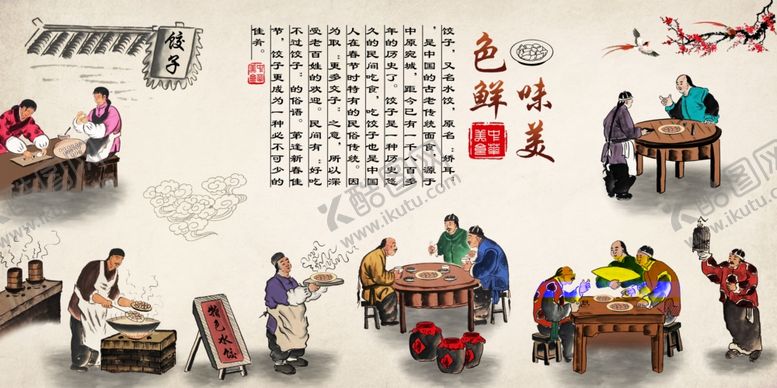 饺子
饺子，又名水饺，原名“娇耳”
，是中国的古老传统面食，源于
中原宛城，距今已有一千八百多
年的历史了。饺子是一种历史悠
久的民间吃食，吃饺子也是中国
人在春节时特有的民俗传统。因
为取“更多交子”之意，所以深
受老百姓的欢迎。民间有“好吃
不过饺子”的俗语。每逢新春佳
节，饺子更成为一种必不可少的
佳肴。
中华美食
味美
色鲜
中华美食
特色水饺
酷图网
www.ikutu.com
酷图网
www.ikutu.com